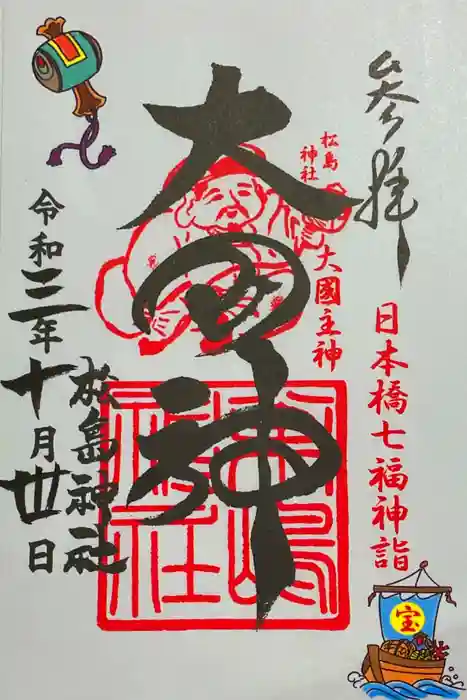 参拝
日本橋七福神詣
宝
松島
神社
大國主神
大国神
松島
神社
松島神社
令和三年十月卅日